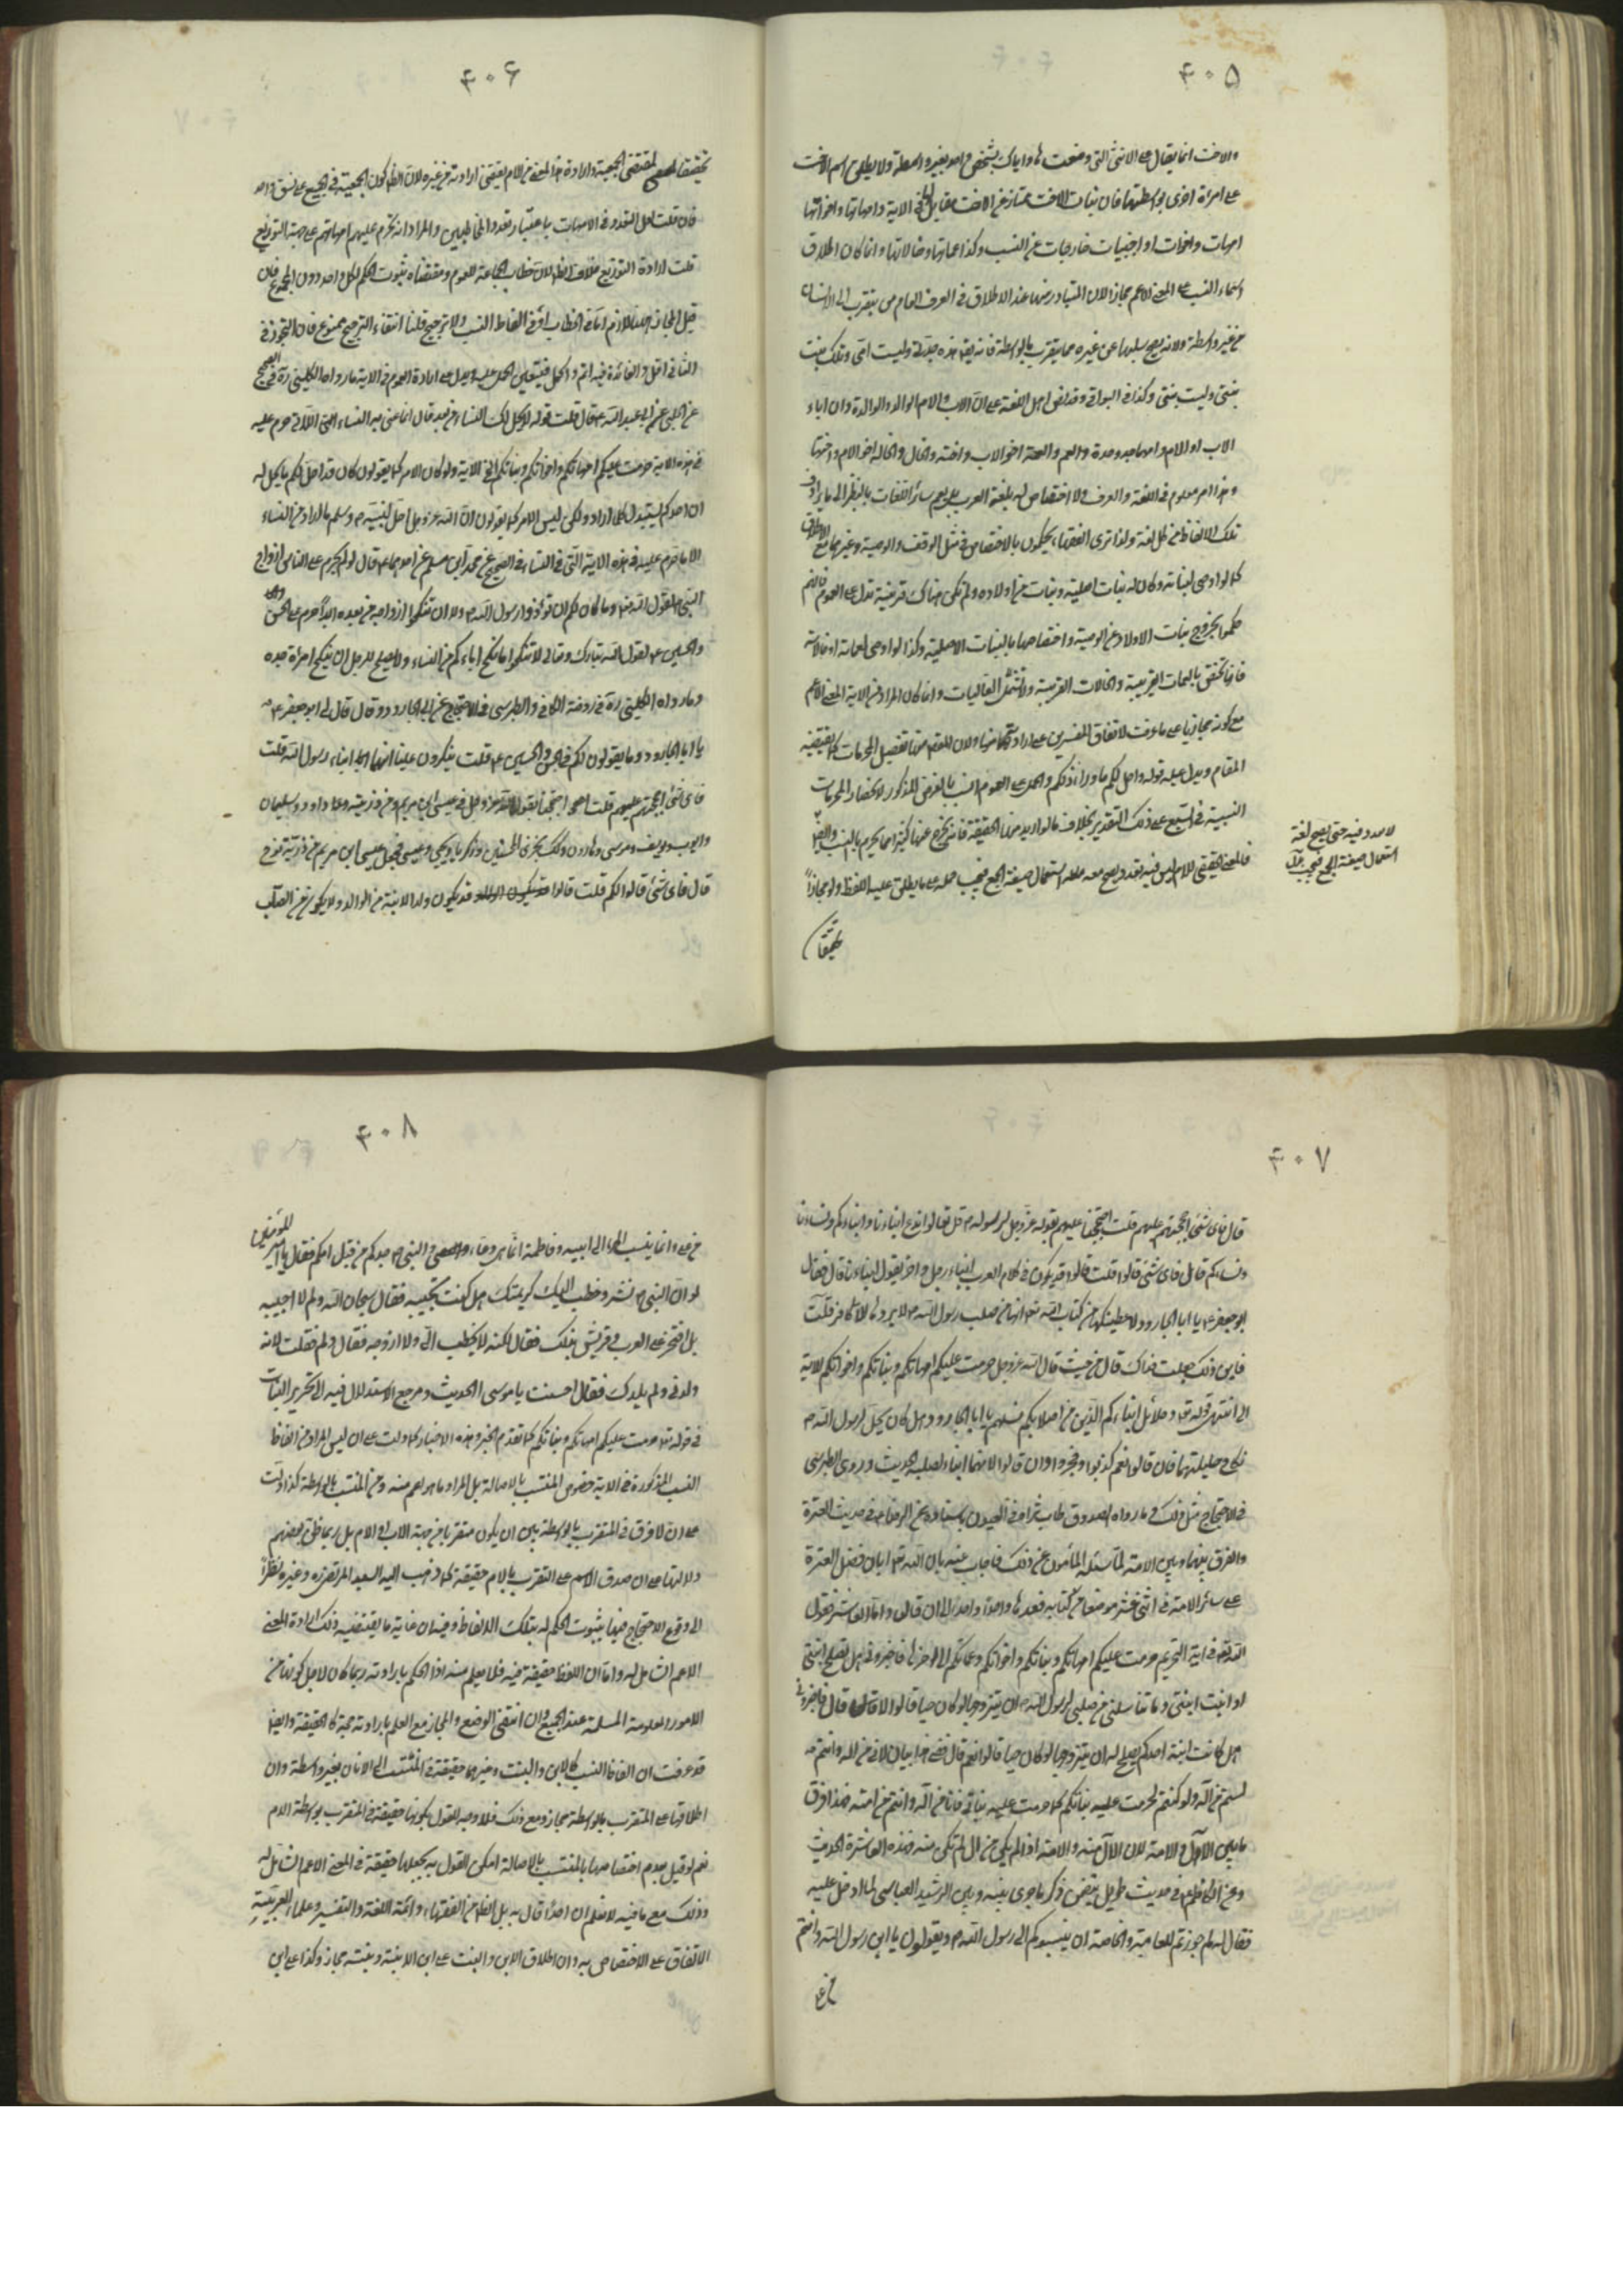 ۴۰۵
والاخت انما يقال على الانثى التى وضعت لها واياك بشخص واحد بغير واسطة ولا يطلق اسم الاخت
على امرأة اخرى بواسطتهما فان بنات الاخت ممتاز عن الاخت مقابل لها فى الآية وامهاتها واخواتها
امهات واخوات او اجنبيات خارجات عن النسب وكذا عماتها وخالاتها وانما كان اطلاق
اسماء النسب على المعنى الاعم مجازا لان المتبادر منها عند الاطلاق فى العرف العام من يتقرب الى الانسان
من غير واسطة ولانه يصح سلبها عن غيره مما يتقرب بالواسطة فانه يقال هذه جدتى وليست امى وتلك بنت
بنتى وليست بنتى وكذا فى البواقى وقد نص اهل اللغة على ان الاب والام الوالد والوالدة وان اباء
الاب او الام وامهاتهما جد وجدة والعم والعمة اخو الاب واخته والخال والخالة اخو الام واختها
وهذا امر معلوم فى اللغة والعرف ولا اختصاص له بلغة العرب بل يعم سائر اللغات بالنظر الى ما يرادف
تلك الالفاظ من كل لغة ولذا ترى الفقهاء يحكمون بالاختصاص فى مثل الوقف والوصية وغيرهما مع الاطلاق
كما لو اوصى لبناته وكان له بنات اصلية وبنات من اولاده ولم تكن هناك قرينة تدل على العموم فانهم
حكموا بخروج بنات الاولاد عن الوصية واختصاصها بالبنات الاصلية وكذا لو اوصى لعماته او خالاته
فانها تختص بالعمات القريبة والخالات القريبة ولا تشمل العاليات وانما كان المراد من الآية المعنى الاعم
مع كونه مجازيا على ما عرفت لاتفاق المفسرين على ارادته هنا ولان المقصود منها تفصيل المحرمات كما يقتضيه
المقام ويدل عليه قوله واحل لكم ما وراء ذلكم والحمل على العموم انسب بالغرض المذكور لانحصار المحرمات
النسبية فى السبع على ذلك التقدير بخلاف ما لو اريد منها الحقيقة فانه يخرج عنها كثير مما يحرم بالنسب وايضا
فالمعنى الحقيقى للام ليس فيه تعدد يصح معه استعمال صيغة الجمع فيجب حمله على ما يطلق عليه اللفظ ولو مجازا
تحقيقا
لا تعدد فيه حتى يصح لغة
استعمال صيغة الجمع فيجب حمله
۴۰۶
تحقيقا لمقتضى الجمعية وارادة هذا المعنى من الام يقتضى ارادته من غيره لان الظاهر كون الجمعية فى الجميع على نسق واحد
فان قلت لعل التعدد فى الامهات باعتبار تعدد المخاطبين والمراد انه تحرم عليهم امهاتهم على جهة التوزيع
قلت ارادة التوزيع خلاف الظاهر لان خطاب الجماعة للعموم ومقتضاه ثبوت الحكم لكل واحد دون المجموع فان
قيل المجاز هنا لازم اما فى الخطاب او فى الفاظ النسب ولا ترجيح قلنا انتفاء الترجيح ممنوع فان التجوز فى
الثانى اقل والفائدة فيه اتم واكمل فيتعين الحمل عليه ويدل على ارادة العموم فى الآية ما رواه الكلينى ره فى الصحيح
عن الحلبى عن ابى عبد الله ع قال قلت قوله لا يحل لك النساء من بعد قال انما عنى به النساء اللاتى حرم عليه
فى هذه الآية حرمت عليكم امهاتكم واخواتكم وبناتكم الى الآية ولو كان الامر كما يقولون كان قد احل لكم ما لا يحل له
ان احدكم يستبدل كلما اراد ولكن ليس الامر كما يقولون ان الله عز وجل احل لنبيه ص وسلم ما اراد من النساء
الا ما حرم عليه فى هذه الآية التى فى النساء وفى الصحيح عن محمد بن مسلم عن احدهما ع قال لو لم يحرم على الناس ازواج
النبى ص لقول الله عز وجل وما كان لكم ان تؤذوا رسول الله ولا ان تنكحوا ازواجه من بعده ابدا حرم على الحسن
والحسين ع لقول الله تبارك وتعالى لا تنكحوا ما نكح اباؤكم من النساء ولا يصلح للرجل ان ينكح امرأة جده
وما رواه الكلينى ره فى روضة الكافى والطبرسى فى الاحتجاج عن ابى الجارود قال قال لى ابو جعفر ع
يا ابا الجارود ما يقولون لكم فى الحسن والحسين ع قلت ينكرون علينا انهما ابناء رسول الله قلت
فاى شئ احتججتم عليهم قلت احتججنا بقول الله عز وجل فى عيسى ابن مريم ومن ذريته داود وسليمان
وايوب ويوسف وموسى وهارون وكذلك نجزى المحسنين وزكريا ويحيى وعيسى فجعل عيسى ابن مريم من ذرية نوح
قال فاى شئ قالوا لكم قلت قالوا قد يكون ولد الابنة من الولد ولا يكون من الصلب
۴۰۷
قال فاى شئ احتججتم عليهم قلت احتججنا عليهم بقوله عز وجل لرسوله ص قل تعالوا ندع ابناءنا وابناءكم ونساءنا
ونساءكم قال فاى شئ قالوا قلت قالوا قد يكون فى كلام العرب ابناء رجل واخر يقول ابناءنا قال فقال
ابو جعفر ع يا ابا الجارود لاعطينكها من كتاب الله تعالى انهما من صلب رسول الله ص لا يردها الا كافر قلت
فاين ذلك جعلت فداك قال من حيث قال الله عز وجل حرمت عليكم امهاتكم وبناتكم واخواتكم الآية
الى ان انتهى الى قوله تعالى وحلائل ابنائكم الذين من اصلابكم فسلهم يا ابا الجارود هل كان يحل لرسول الله ص
نكاح حليلتهما فان قالوا نعم كذبوا وفجروا وان قالوا لا فهما ابناه لصلبه الحديث وروى الطبرسى
فى الاحتجاج مثل ذلك وما رواه الصدوق طاب ثراه فى العيون باسناده عن الرضا ع فى حديث العترة
والفرق بينها وبين الامة لما سئله المأمون عن ذلك فاجاب عنه بان الله تعالى ابان فضل العترة
على سائر الامة فى اثنى عشر موضعا من كتابه فعدها واحدا واحدا الى ان قال واما العاشر فقول
الله تعالى فى آية التحريم حرمت عليكم امهاتكم وبناتكم واخواتكم وعماتكم الى اخرها فاخبرونى هل تصلح ابنتى
او ابنت ابنتى وما تناسل من صلبى لرسول الله ص ان يتزوجها لو كان حيا قالوا لا قال فاخبرونى
هل كانت ابنة احدكم يصلح له ان يتزوجها لو كان حيا قالوا نعم قال ففى هذا بيان لانى من آله وانتم
لستم من آله ولو كنتم لحرمت عليه بناتكم كما حرمت عليه بناتى فانا من آله وانتم من امته فهذا فرق
ما بين الآل والامة لان الآل منه والامة اذا لم يكن من الآل لم تكن منه فهذه العاشرة الحديث
وعن الكاظم ع فى حديث طويل يتضمن ذكر ما جرى بينه وبين الرشيد العباسى لما ادخل عليه
فقال له لم جوزتم للعامة والخاصة ان ينسبوكم الى رسول الله ص ويقولون يا ابن رسول الله وانتم
من على
۴۰۸
من على وانما ينسب المرء الى ابيه وفاطمة انما هى وعاء والنبى ص جدكم من قبل امكم فقال يا امير المؤمنين
لو ان النبى ص نشر وخطب اليك كريمتك هل كنت تجيبه فقال سبحان الله ولم لا اجيبه
بل افتخر على العرب وقريش بذلك فقال لكنه لا يخطب الى ولا ازوجه فقال ولم فقلت لانه
ولدنى ولم يلدك فقال احسنت يا موسى الحديث ومرجع الاستدلال فيه الى تحريم البنات
فى قوله تعالى حرمت عليكم امهاتكم وبناتكم كما تقدم الخبر وهذه الاخبار كما دلت على ان ليس المراد من الفاظ
النسب المذكورة فى الآية خصوص المنتسب بالاصالة بل المراد ما هو اعم منه ومن المنتسب بالواسطة كذا دلت
على ان لا فرق فى المتقرب بالواسطة بين ان يكون متقربا من جهة الاب او الام بل ربما ظن بعضهم
دلالتها على ان صدق الاسم على المتقرب بالام حقيقة كما ذهب اليه السيد المرتضى ره وغيره نظرا
الى وقوع الاحتجاج فيها بثبوت الحكم له بتلك الالفاظ وفيه ان غاية ما يقتضيه ذلك ارادة المعنى
الاعم الشامل له واما ان اللفظ حقيقة فيه فلا يعلم منه اذ الحكم بارادته ربما كان لاجل كونها من
الامور المعلومة المسلمة عند الجميع وان انتفى الوضع والمجاز مع العلم بارادته حجة كالحقيقة وايضا
قد عرفت ان الفاظ النسب كالابن والبنت وغيرهما حقيقة فى المنتسب الى الانسان بغير واسطة وان
اطلاقها على المتقرب بالواسطة مجاز ومع ذلك فلا وجه للقول بكونها حقيقة فى المتقرب بواسطة الام
نعم لو قيل بعدم اختصاصها بالمنتسب بالاصالة امكن القول به بجعلها حقيقة فى المعنى الاعم الشامل له
وذلك مع ما فيه لا نعلم ان احدا قال به بل الظاهر من الفقهاء وائمة اللغة والتفسير وعلماء العربية
الاتفاق على الاختصاص به وان اطلاق الابن والبنت على ابن الابنة وبنته مجاز وكذا على ابن